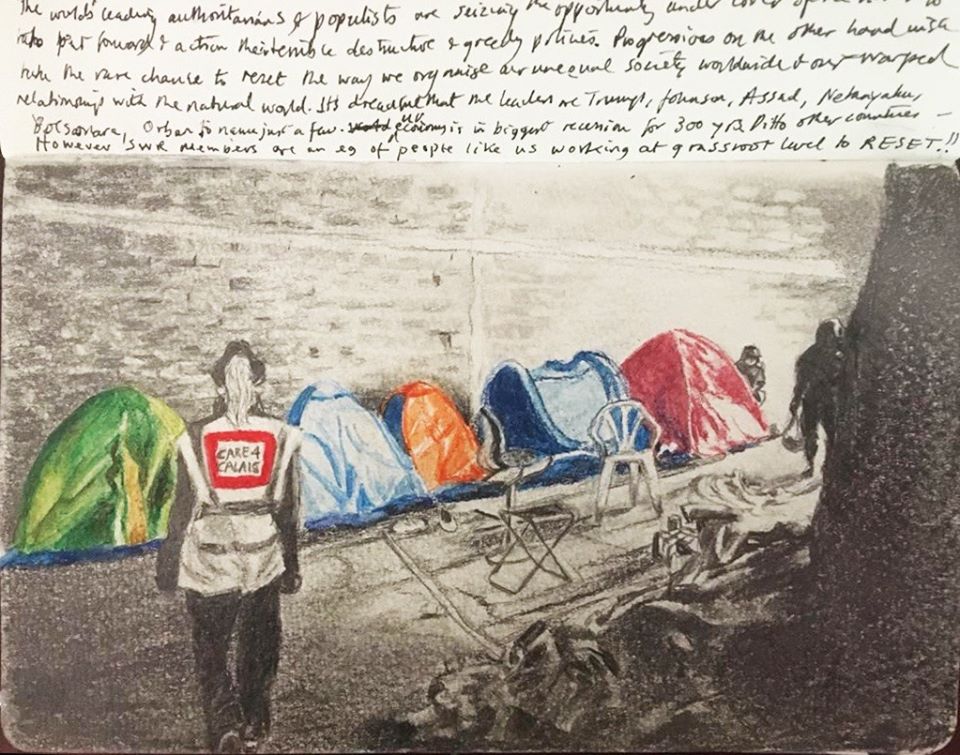 The world's leading authoritarians & populists are seizing the opportunity under cover of
into put forward & action their terrible destructive & greedy policies. Progressives on the other hand wish
take the rare chance to reset the way we organise our unequal society worldwide & our warped
relationships with the natural world. It's dreadful that the leaders are Trump, Johnson, Assad, Netanyahu,
Bolsonara, Orban to name just a few. UK economy is in biggest recession for 300 yrs Ditto other countries –
However SWR members are an eg of people like us working at grassroot level to RESET!!
CARE 4
CALAIS